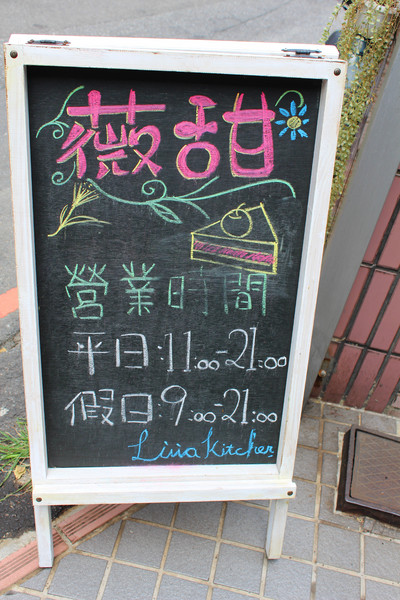 薇甜
營業時間
平日:11:00-21:00
假日:9:00-21:00
Livia Kitchen